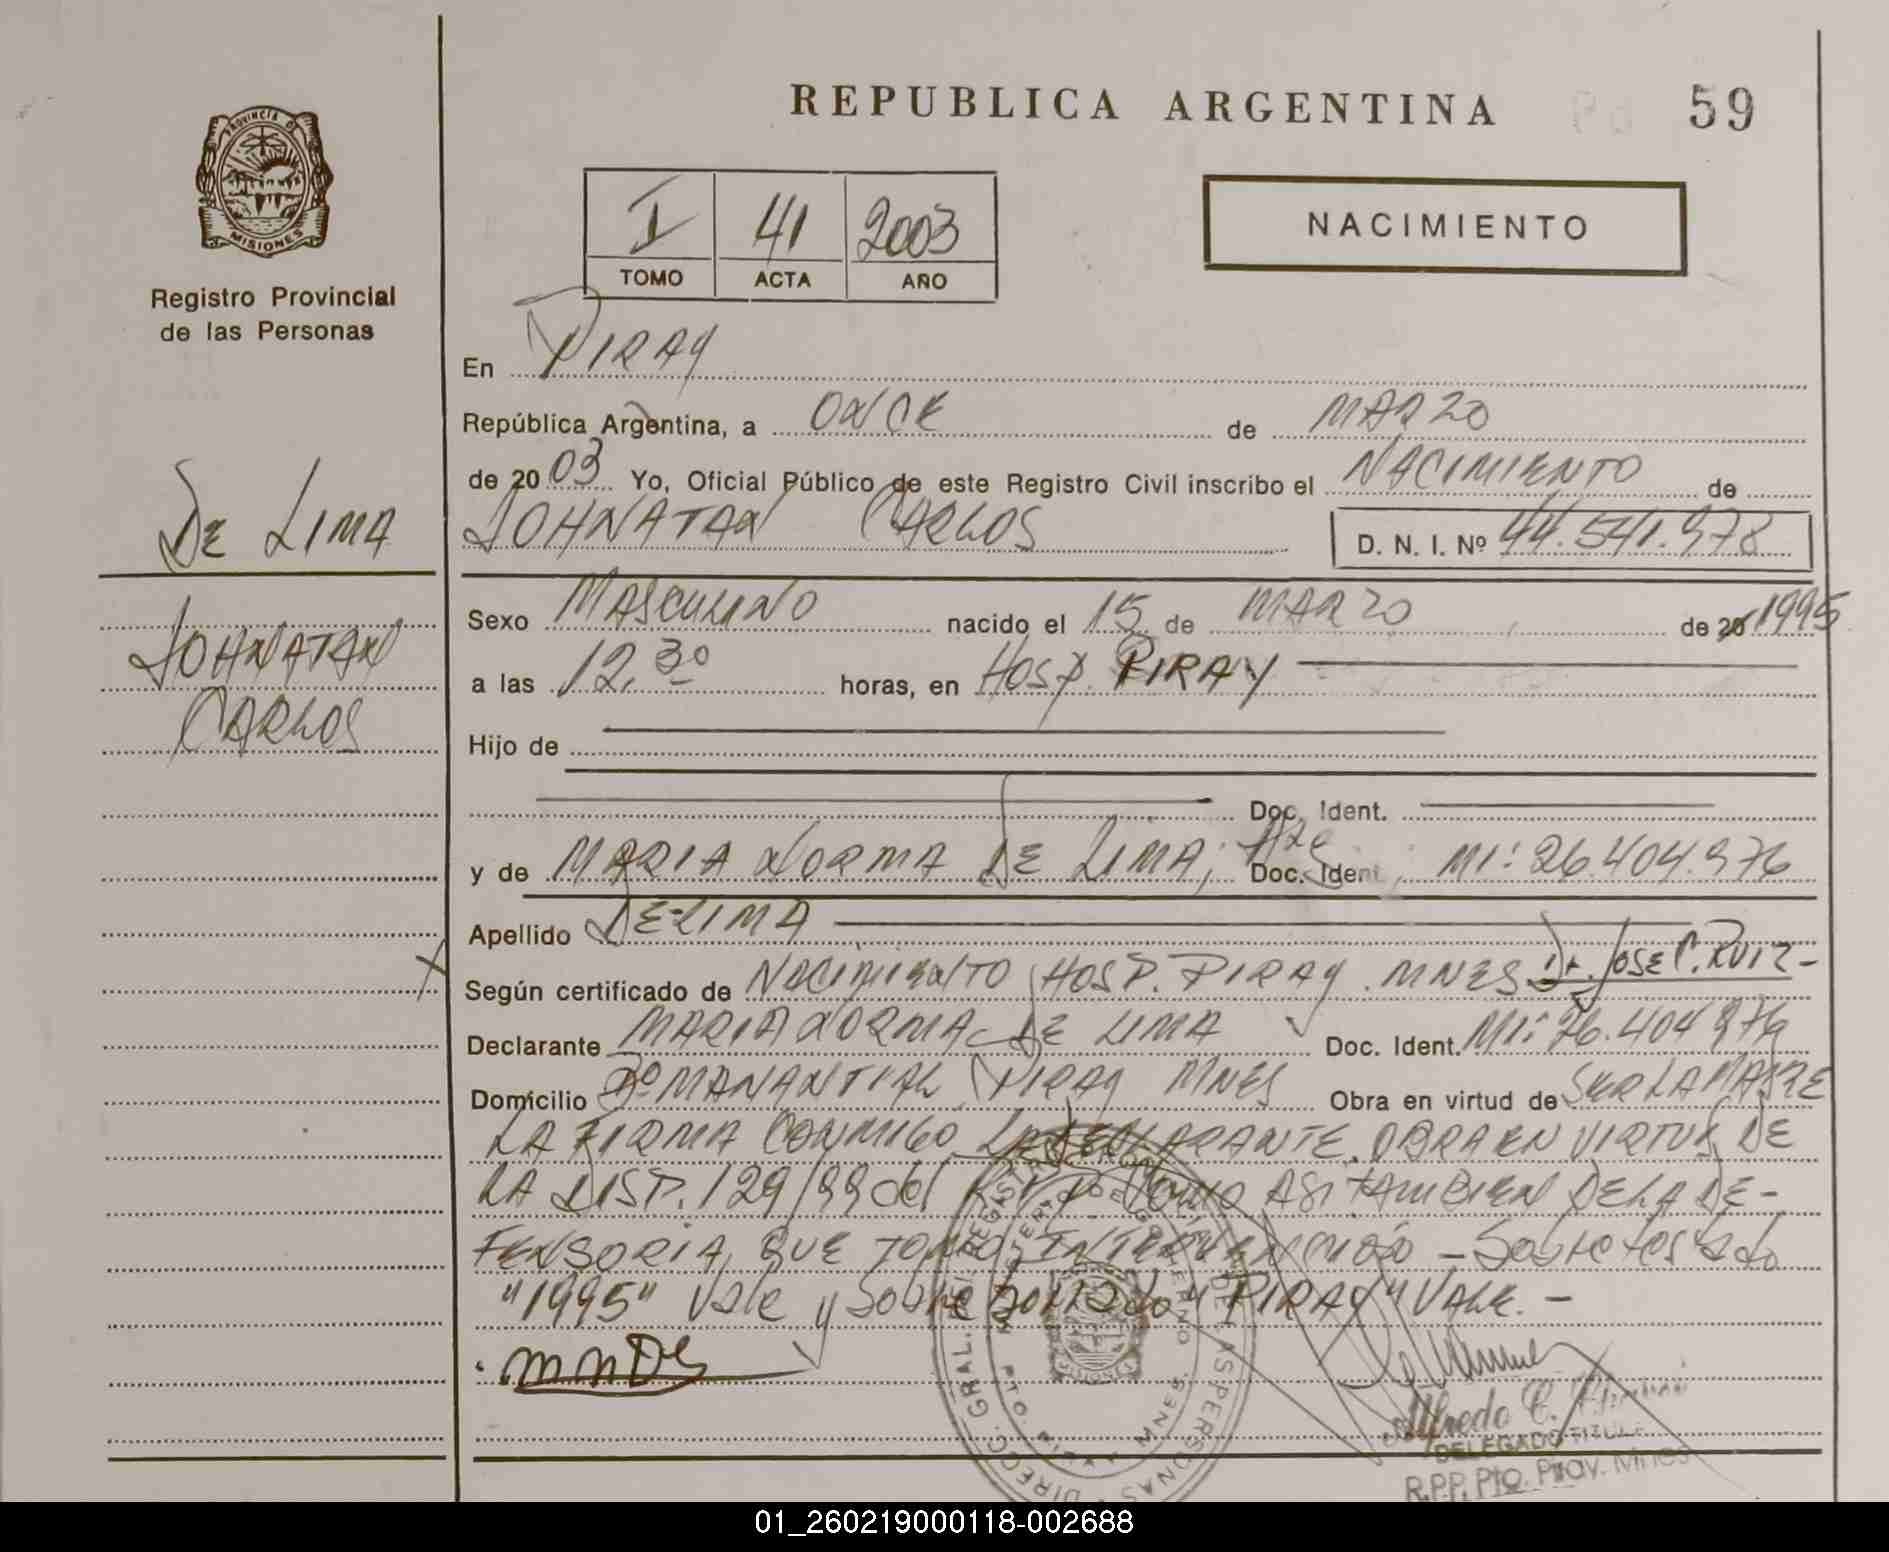 REPUBLICA ARGENTINA
59
PROVINCIA DE
MISIONES
Registro Provincial
de las Personas
I 41 2003
TOMO ACTA AÑO
NACIMIENTO
En PIRAY
República Argentina, a ONCE de MARZO
de 2003 Yo, Oficial Público de este Registro Civil inscribo el NACIMIENTO de
JOHNATAN CARLOS D. N. I. Nº 44.541.978
DE LIMA
JOHNATAN
CARLOS
Sexo MASCULINO nacido el 15 de MARZO de 20 1995
a las 12,30 horas, en HOSP. PIRAY
Hijo de
Doc. Ident.
y de MARIA NORMA DE LIMA; Arg Doc. Ident MI: 26.404.976
Apellido DE LIMA
Según certificado de NACIMIENTO HOSP. PIRAY. MNES Dr. JOSE C. RUIZ-
Declarante MARIA NORMA DE LIMA Doc. Ident. MI: 26.404.976
Domicilio Bº MANANTIAL PIRAY MNES Obra en virtud de SER LA MADRE
LA FIRMA CONMIGO LA DECLARANTE. OBRA EN VIRTUD DE
LA DISP. 129/99 del R.P.P. COMO ASI TAMBIEN DE LA DE-
FENSORIA, QUE TOMO INTERVENCION - Sobre testado
"1995" Vale y sobre borrado "PIRAY" VALE. -
DIRECC. GRAL. DEL REGISTRO DE LAS PERSONAS
MINISTERIO DE GOBIERNO
PTO. PIRAY MNES.
Alfredo C.
DELEGADO TITULAR
R.P.P. Pto. Piray. Mnes
01_260219000118-002688